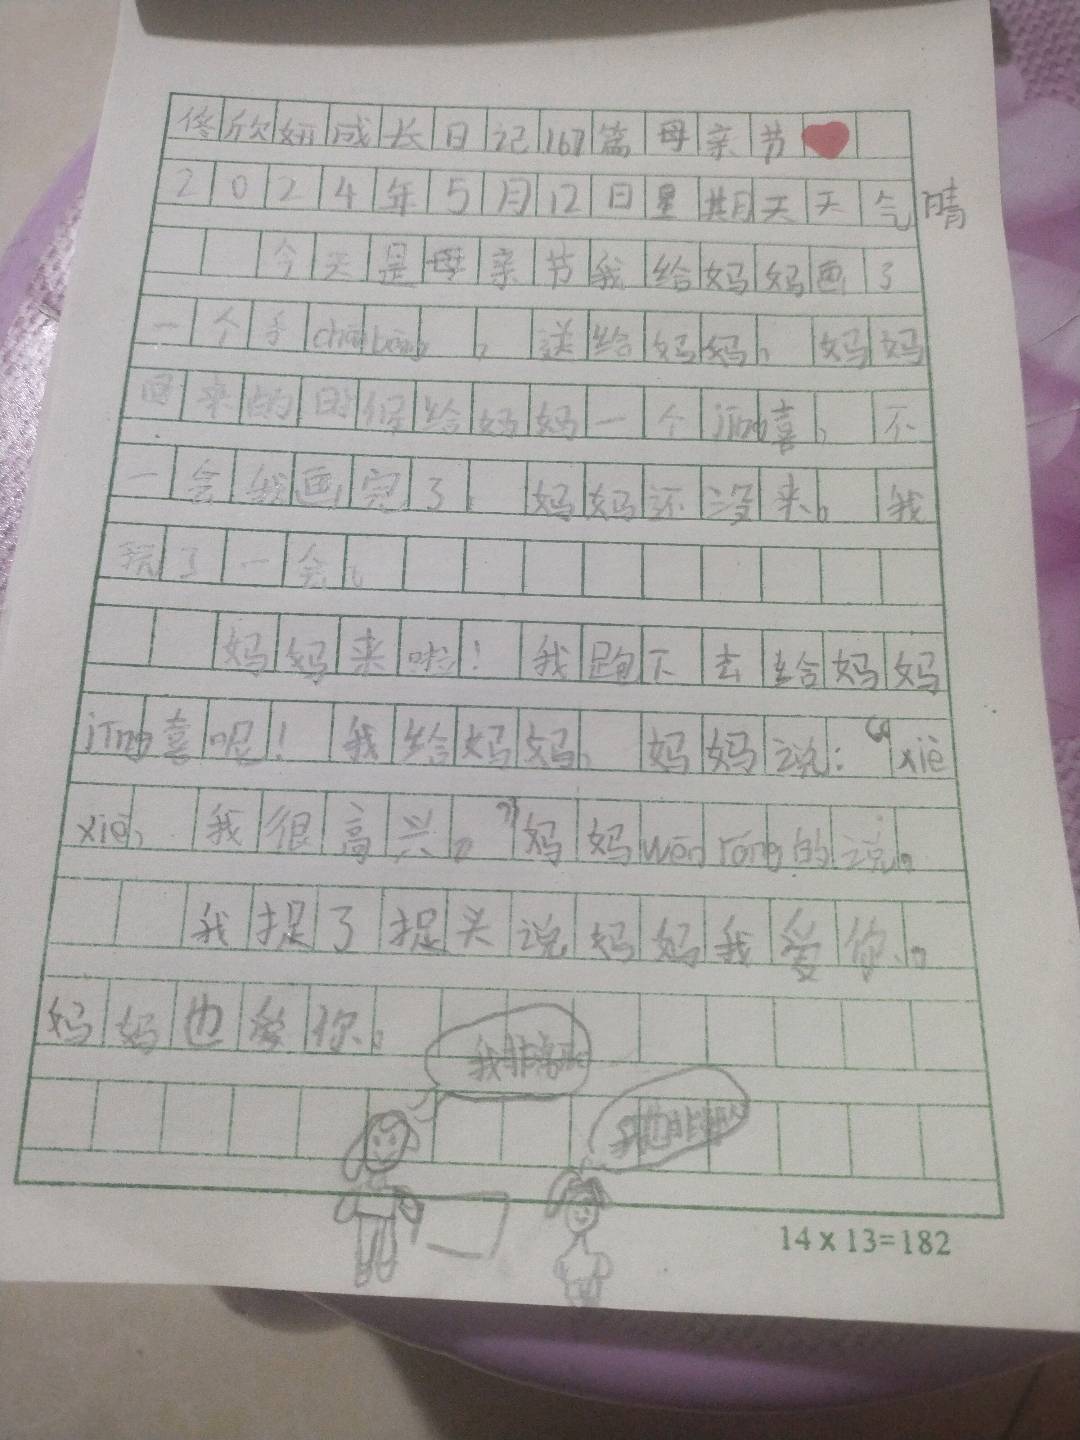 佟欣妍成长日记167篇母亲节
2024年5月12日星期天天气晴
今天是母亲节我给妈妈画了
一个手chāo bào，送给妈妈，妈妈
回来的时候给妈妈一个jīng喜，不
一会我画完了，妈妈还没来。我
玩了一会，
妈妈来啦！我跑下去给妈妈
jīng喜呢！我给妈妈，妈妈说：“xiè
xiè，我很高兴。”妈妈wēn róng的说。
我捉了捉头说妈妈我爱你。
妈妈也爱你。
我非常
我也非
14×13=182